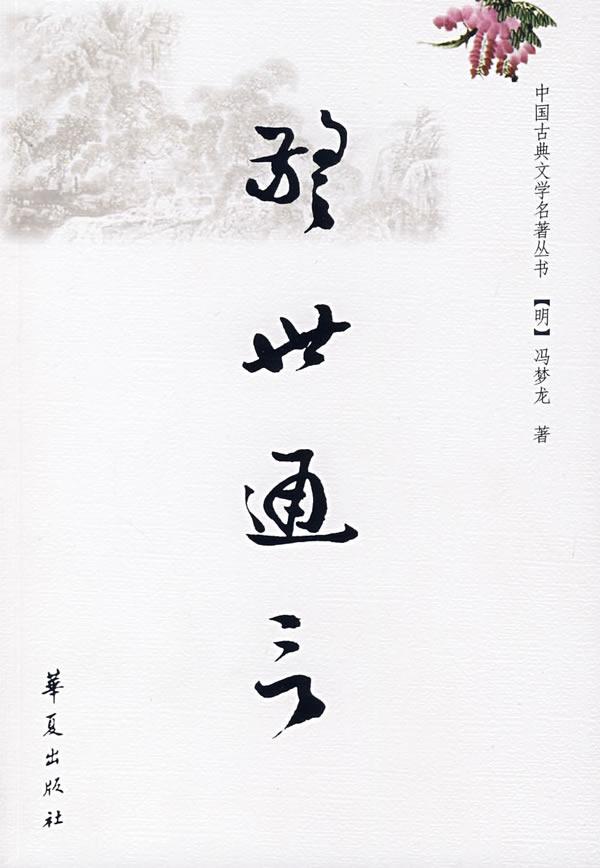 中国古典文学名著丛书 【明】冯梦龙 著
警世通言
華夏出版社